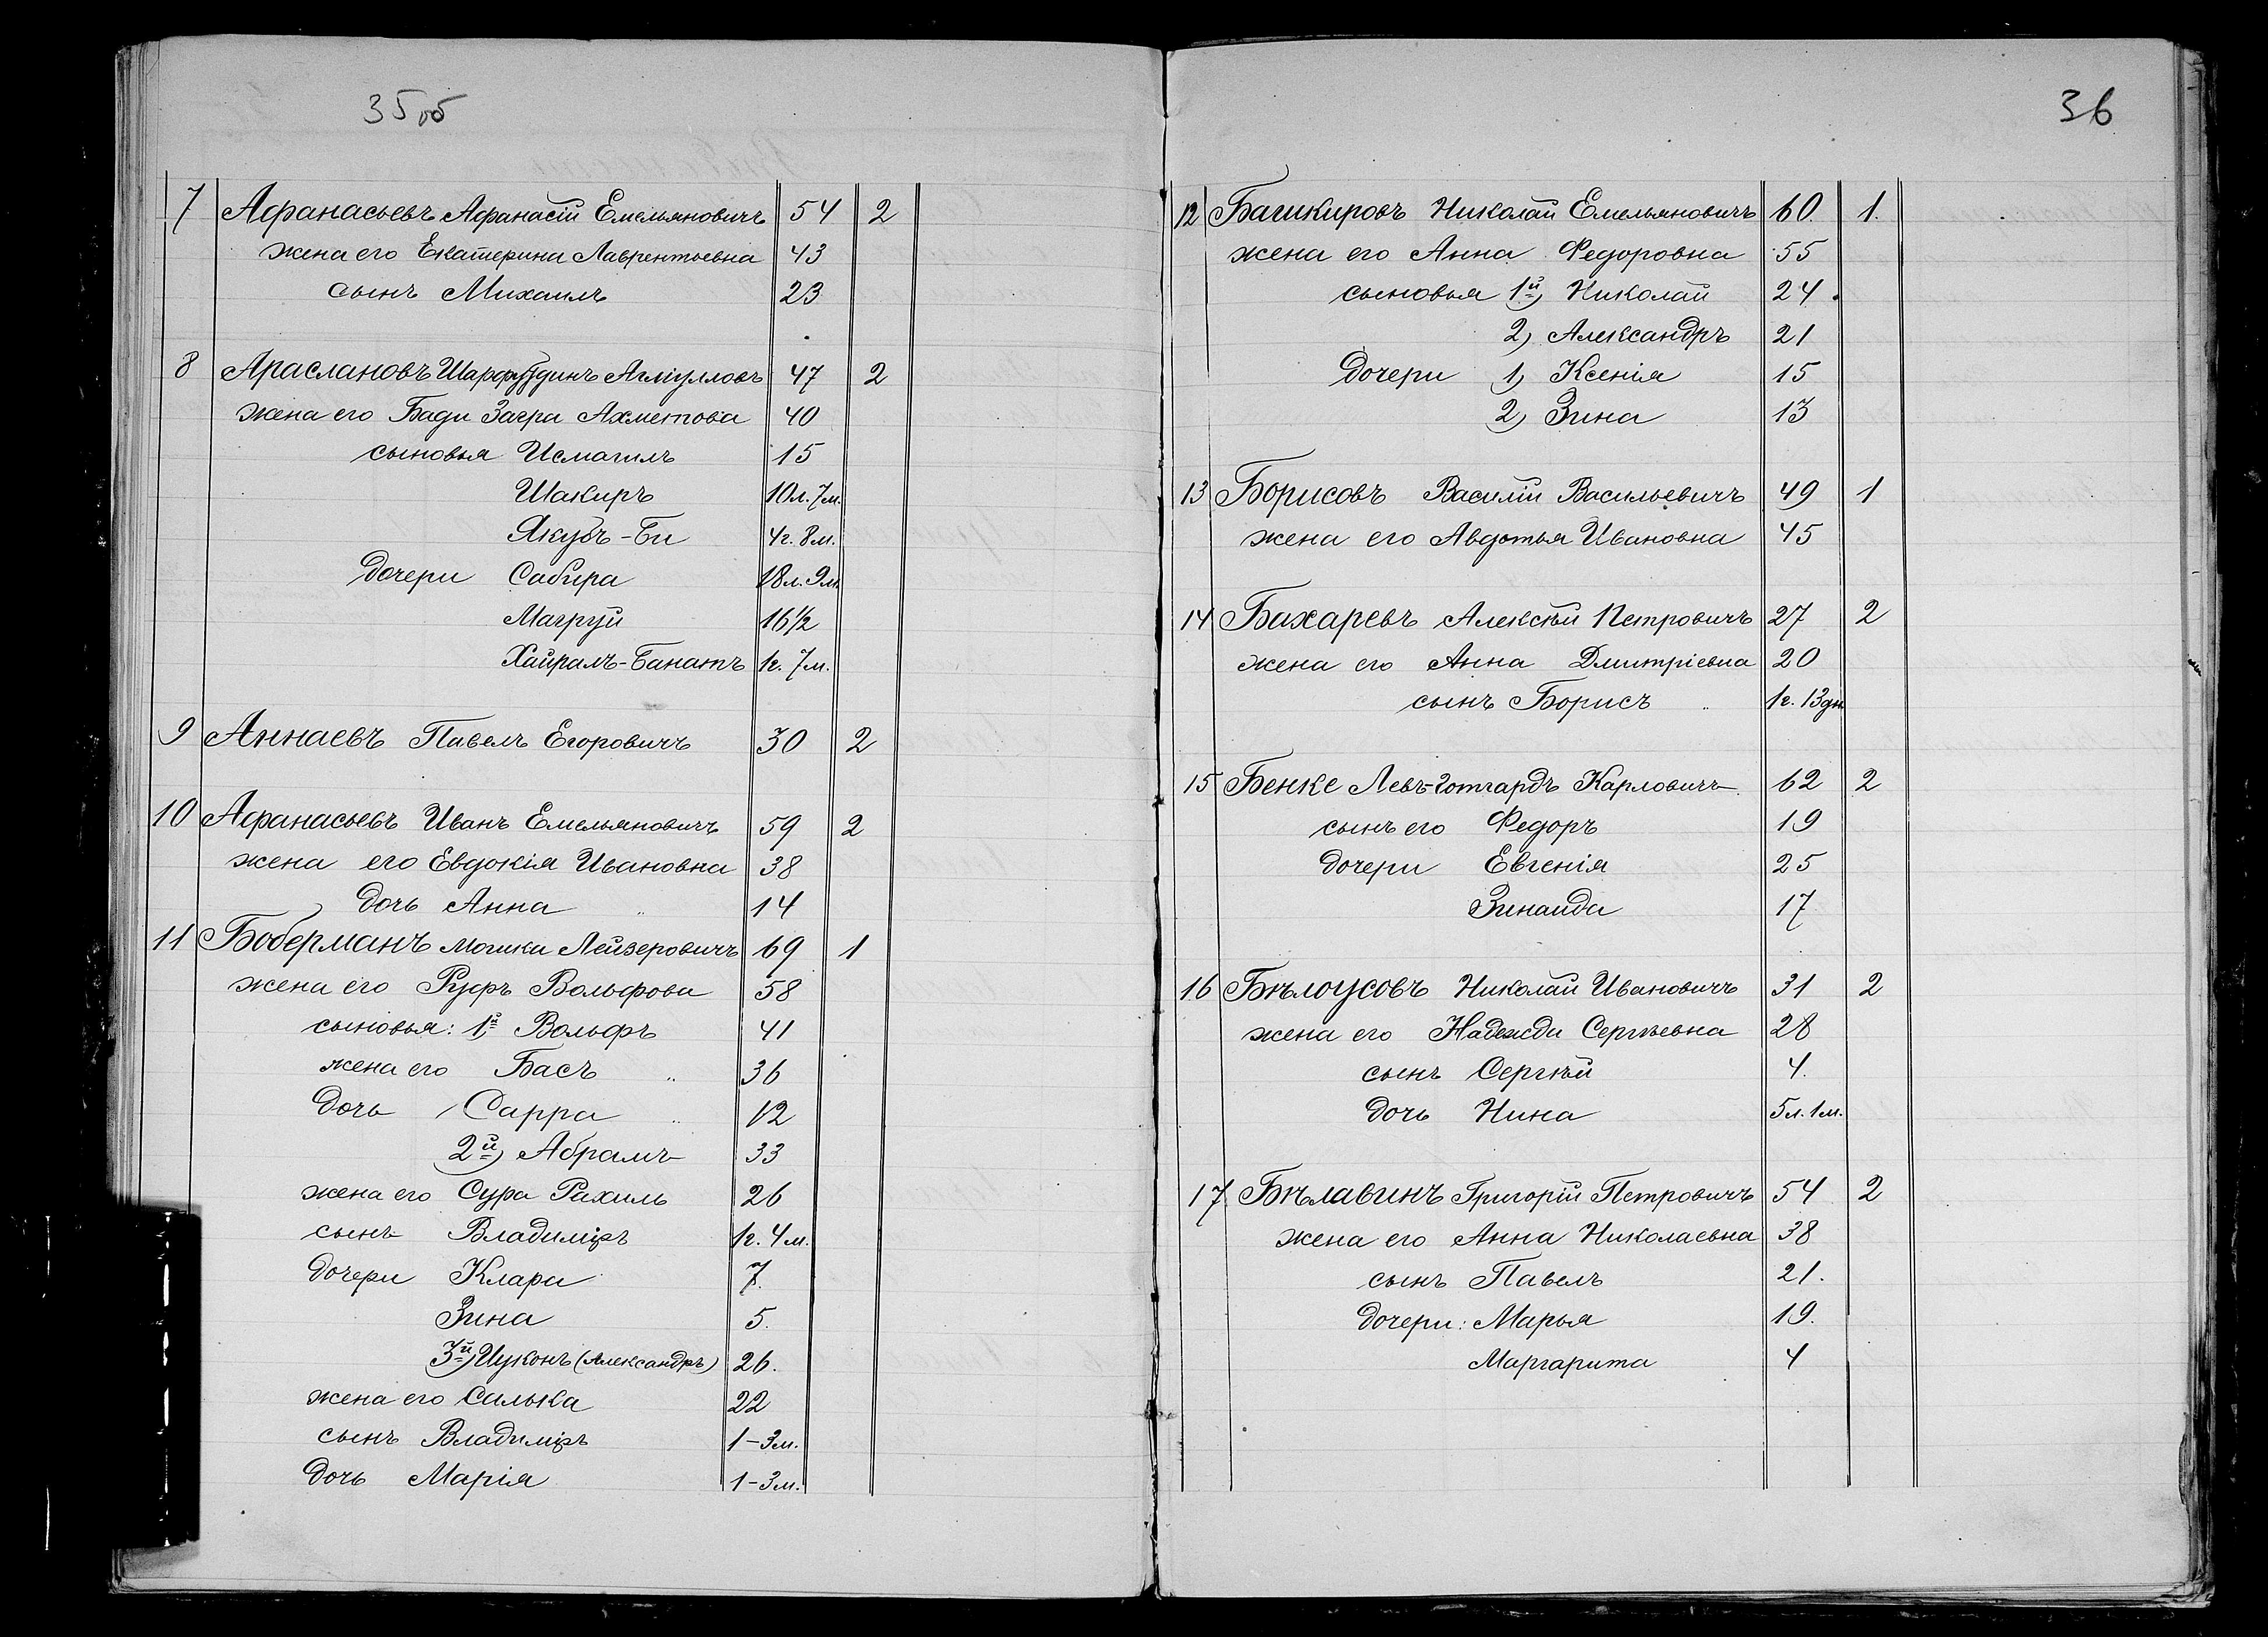 35об
7 Афанасьевъ Афанасій Емельяновичъ 54 2
жена его Екатерина Лаврентьевна 43
сынъ Михаилъ 23
8 Араслановъ Шарафутдинъ 47 2
жена его Бади Загра Ахметова 40
сыновья Исмагилъ 15
Шакиръ 10л. 7м.
Якубъ-Би 4г. 8м.
дочери Сабира 18л. 9м.
Магруй 16½
Хайралъ-Банатъ 1г. 7м.
9 Аннаевъ Павелъ Егоровичъ 30 2
10 Афанасьевъ Иванъ Емельяновичъ 59 2
жена его Евдокія Ивановна 38
дочь Анна 14
11 Боберманъ Мошка Лейзеровичъ 69 1
жена его Руфъ Вольфова 58
сыновья: 1й Вольфъ 41
жена его Басъ 36
дочь Сарра 12
2й) Абрамъ 33
жена его Сура Рахиль 26
сынъ Владиміръ 1г. 4м.
дочери Клара 7.
Зина 5.
3й) (Александръ) 26.
жена его Силька 22
сынъ Владиміръ 1-3м.
дочь Марія 1-3м.
36
12 Башкировъ Николай Емельяновичъ 60 1.
жена его Анна Федоровна 55
сыновья 1й) Николай 24.
2) Александръ 21
дочери 1) Ксенія 15
2) Зина 13
13 Борисовъ Василій Васильевичъ 49 1
жена его Авдотья Ивановна 45
14 Бахаревъ Алексѣй Петровичъ 27 2
жена его Анна Дмитріевна 20
сынъ Борисъ 1г. 13дн
15 Бенке Левъ-Готгардъ Карловичъ 62 2
сынъ его Федоръ 19
дочери Евгенія 25
Зинаида 17
16 Бѣлоусовъ Николай Ивановичъ 31 2
жена его Надежда Сергѣевна 28
сынъ Сергѣй 4.
дочь Нина 5л. 1м.
17 Бѣлавинъ Григорій Петровичъ 54 2
жена его Анна Николаевна 38
сынъ Павелъ 21.
дочери: Марья 19.
Маргарита 4